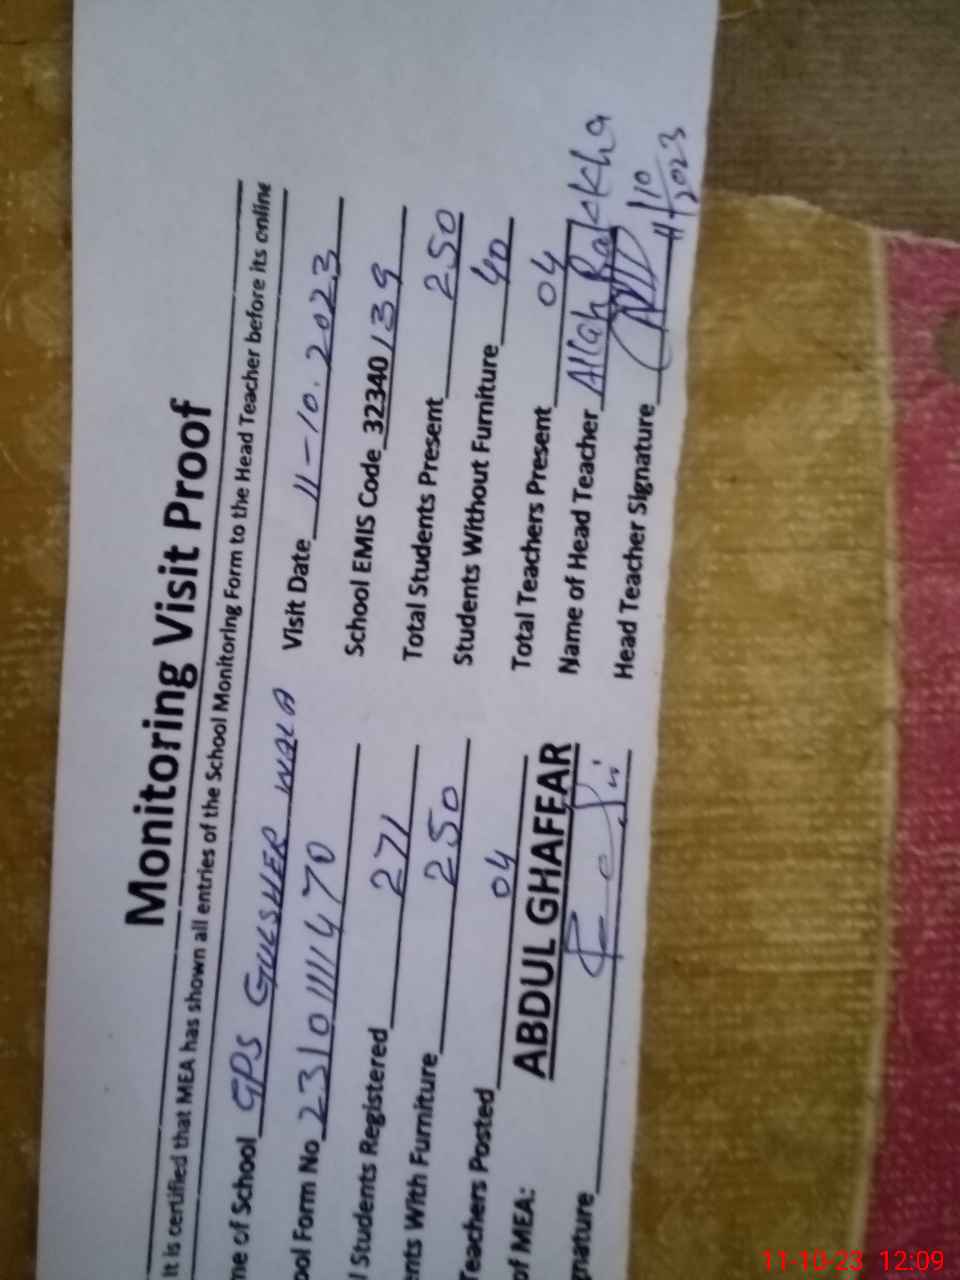 Monitoring Visit Proof
It is certified that MEA has shown all entries of the School Monitoring Form to the Head Teacher before its online
me of School GPS GULSHER WALA Visit Date 11-10.2023
ool Form No 23101111470 School EMIS Code 32340139
l Students Registered 271 Total Students Present 250
ents With Furniture 250 Students Without Furniture 40
Teachers Posted 04 Total Teachers Present 04
of MEA: ABDUL GHAFFAR Name of Head Teacher Allah Rakha
gnature Head Teacher Signature 11/10/2023
11-10-23 12:09